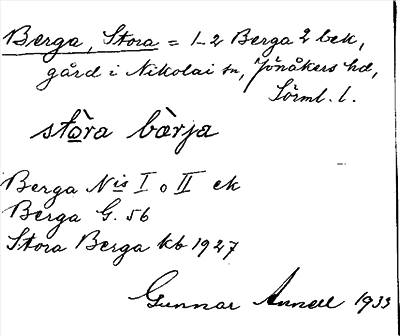 Berga, Stora = 1-2 Berga 2 bek,
gård i Nikolai sn, Jönåkers hd,
Sörml. l.
stòra bàrja
Berga Nis I o II ek
Berga G. 56
Stora Berga kb 1927
Gunnar Annell 1933